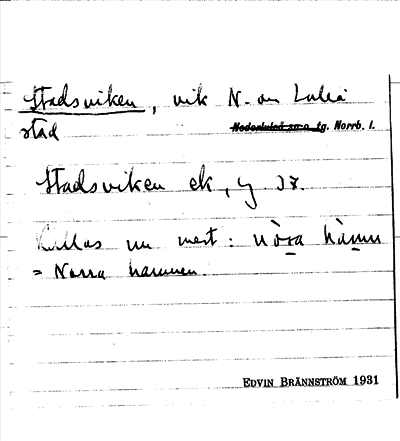 Stadsviken, vik N. om Luleå
stad Nederluleå sn o tg. Norrb. l.
Stadsviken ek, y 37.
Kallas nu mest: nòra hàmn
= Norra hamnen.
EDVIN BRÄNNSTRÖM 1931